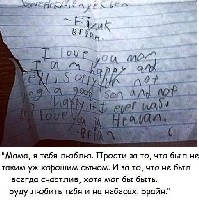 Brian.
I love you mom
I am a happy and
Sorry not
a good son and not
happy. if I ever was
love you in Heavan.
-Brian
"Мама, я тебя люблю. Прости за то, что был не
таким уж хорошим сыном. И за то, что не был
всегда счастлив, хотя мог бы быть.
Буду любить тебя и на небесах. Брайн."